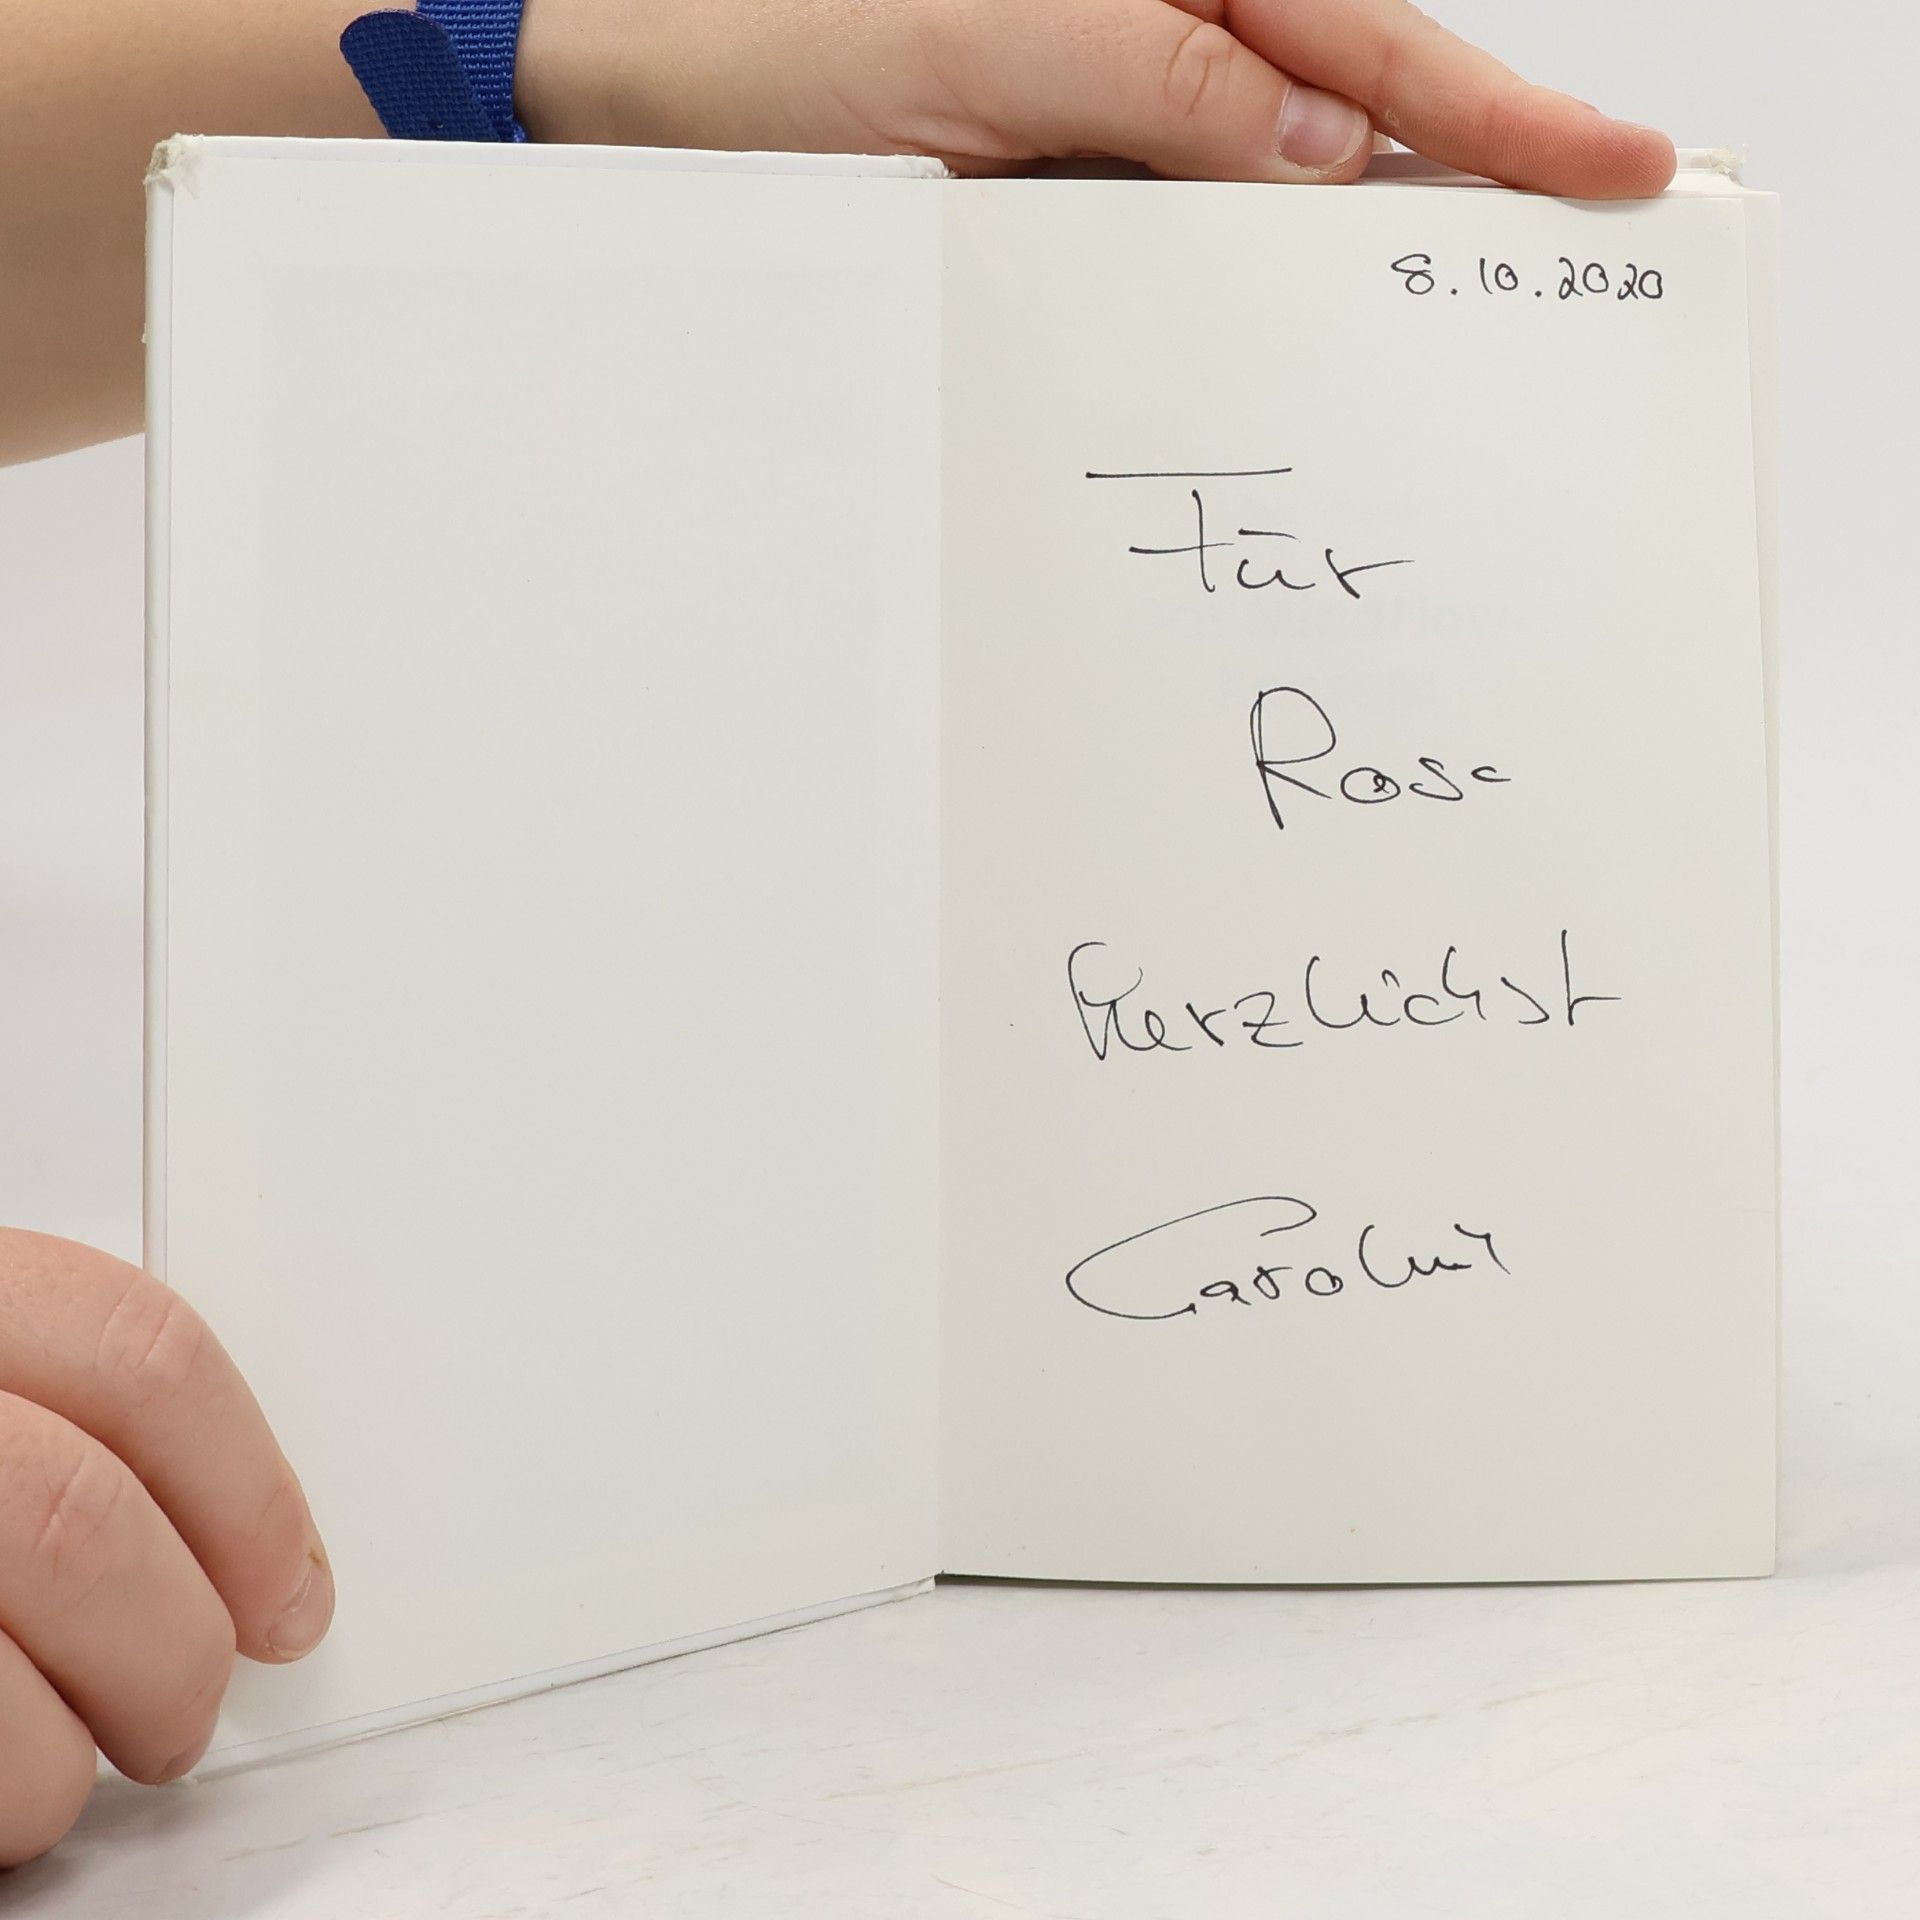 8.10.2020
Für
Rosa
Herzlichst
Carolin